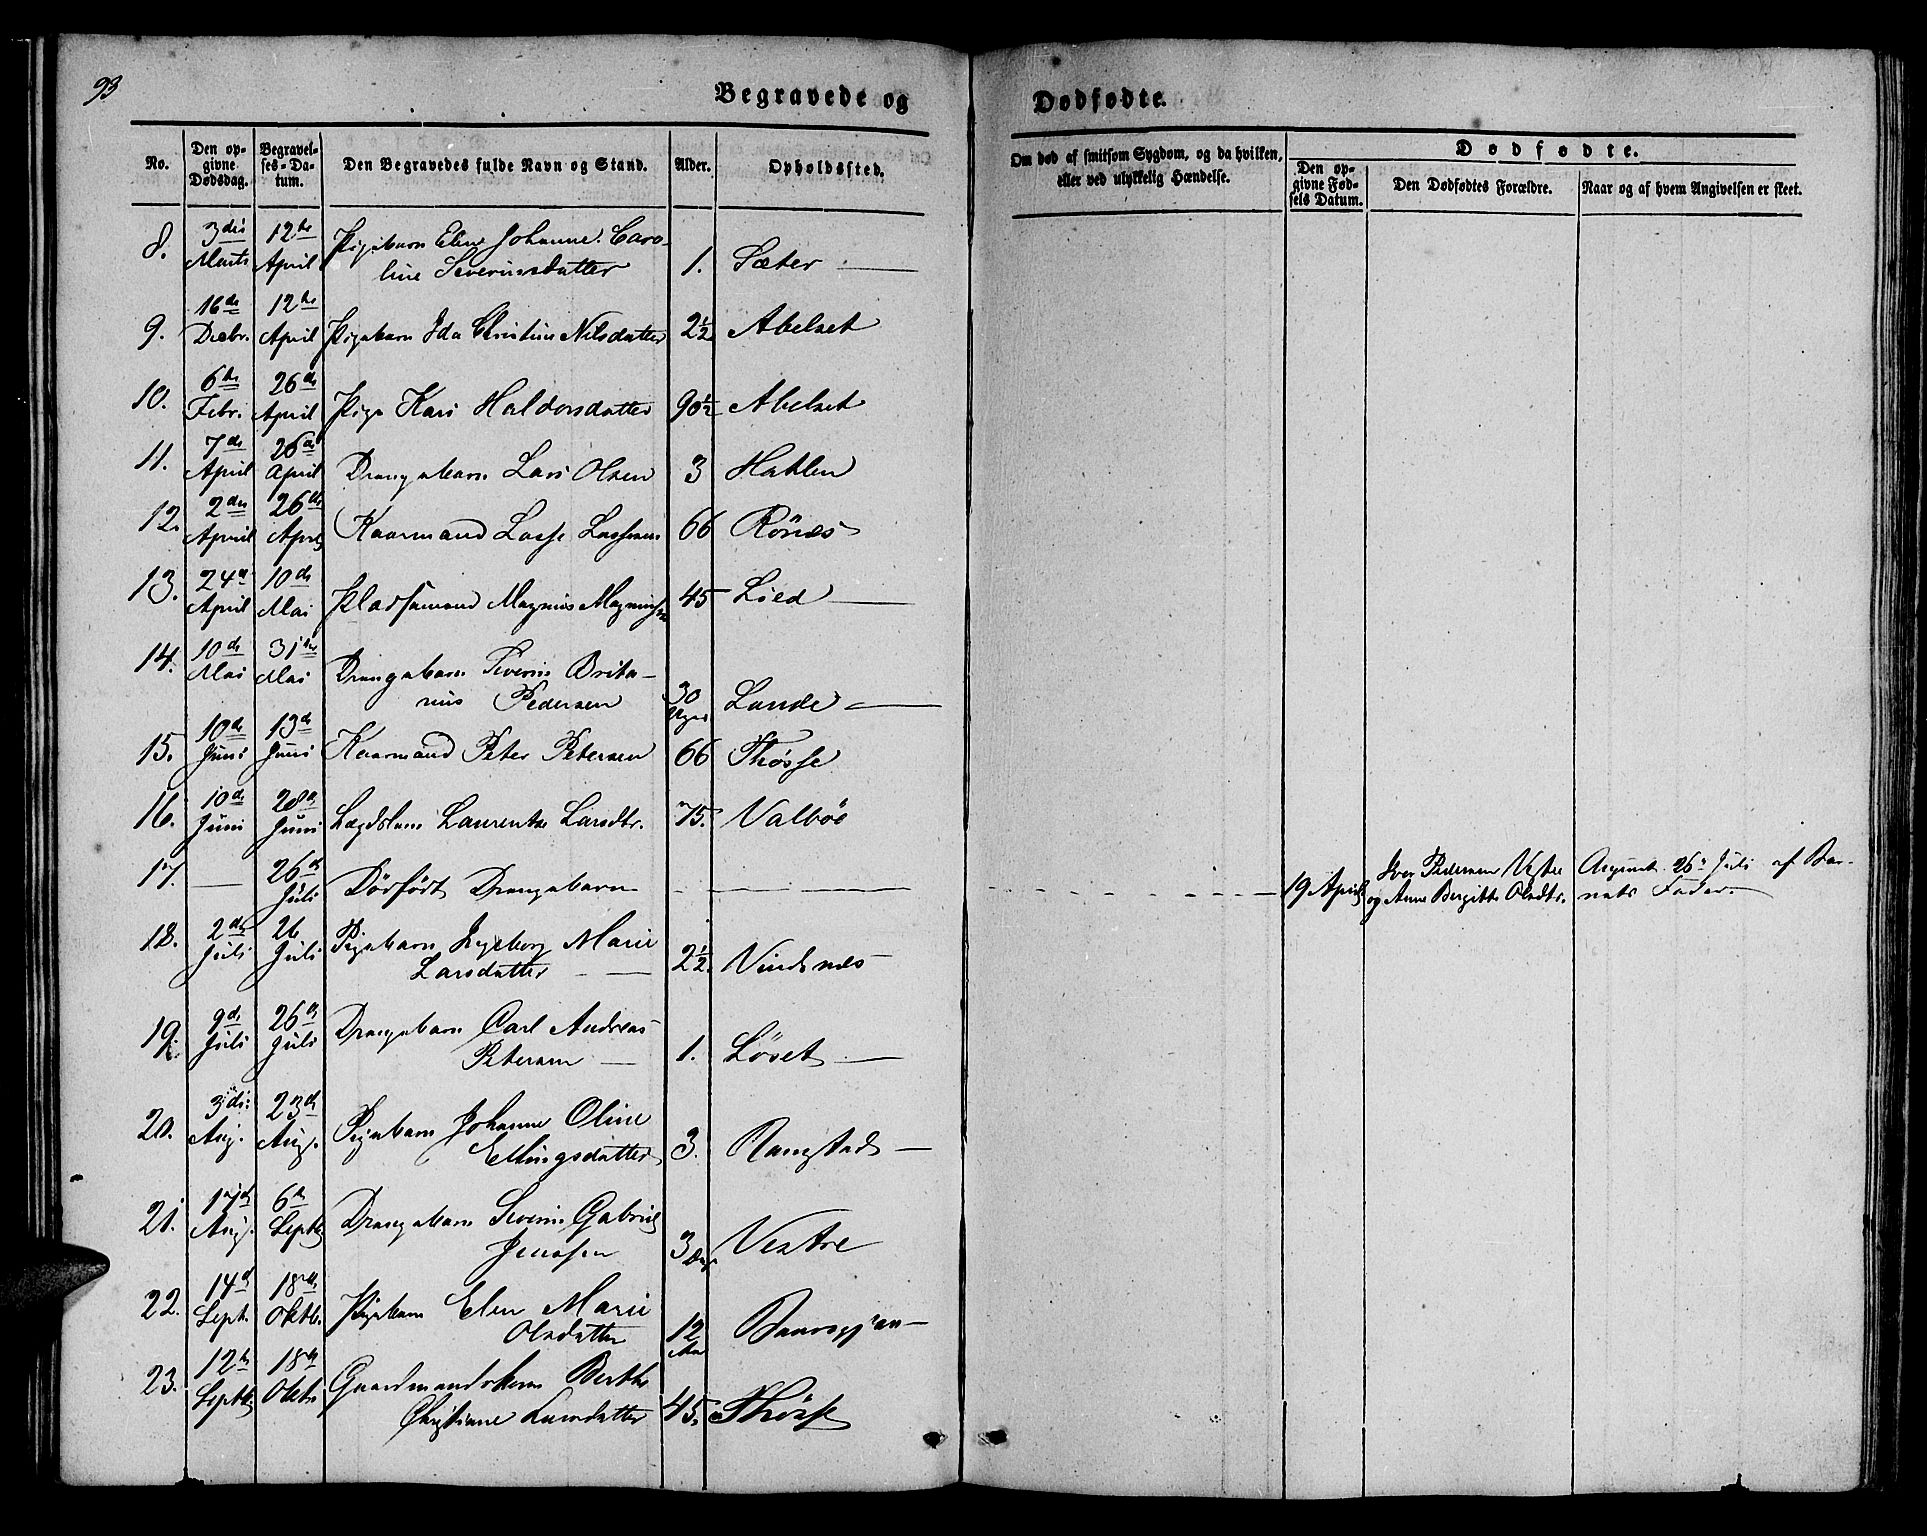 93
Begravede og
Dødfødte.
No.
Den op-
givne
Dødsdag.
Begravel-
ses-Da-
tum.
Den Begravedes fulde Navn og Stand.
Alder.
Opholdssted.
Om død af smitsom Sygdom, og da hvilken,
eller ved ulykkelig Hændelse.
Dødfødte.
Den op-
givne Fød-
sels Datum.
Den Dødfødtes Forældre.
Naar og af hvem Angivelsen er skeet.
8. 3die Marts 12te April Pigebarn Eline Johanne Caro-
line Severinsdatter 1. Sæter
9. 16de Decbr. 12te April Pigebarn Ida Christine Nilsdatter 2½ Abelset
10. 6te Febr. 26de April Pige Kari Haldorsdatter 90½ Abelset
11. 7de April 26de April Drengebarn Lars Olsen 3 Hatlen
12. 2den April 26de April Kaarmand Lasse Lassesen 66 Rönes
13. 24de April 10de Mai Pladsemand Magnus Magnussen 45 Lied
14. 10de Mai 31te Mai Drengebarn Severin Brita-
nius Pedersen 30 Uger Lande
15. 10de Juni 13de Juni Kaarmand Peter Petersen 66 Thösse
16. 10de Juni 28de Juni Lægdslem Laurentse Larsdtr. 75. Valböe
17. — 26de Juli Dödfödt Drengebarn
19 April
Iver Pedersen Vestre
og Anne Bergitte Olsdtr.
26de Juli af Bar-
nets Fader.
18. 2den Juli 26 Juli Pigebarn Ingeborg Marie
Larsdatter 2½. Vindsnes
19. 9de Juli 26de Juli Drengebarn Carl Andreas
Petersen 1. Löset
20. 3die Aug. 23de Aug. Pigebarn Johanne Oline
Ellingsdatter 3. Ramstad
21. 17de Aug. 6te Septbr Drengebarn Severin Gabriel
Jenssen 3 Vestre
22. 14de Sept. 18de Oktbr. Pigebarn Elen Marie
Olsdatter 12
23. 12te Septbr 18de Oktbr Gaardmandskone Berthe
Christiane Larsdatter 45. Thösse